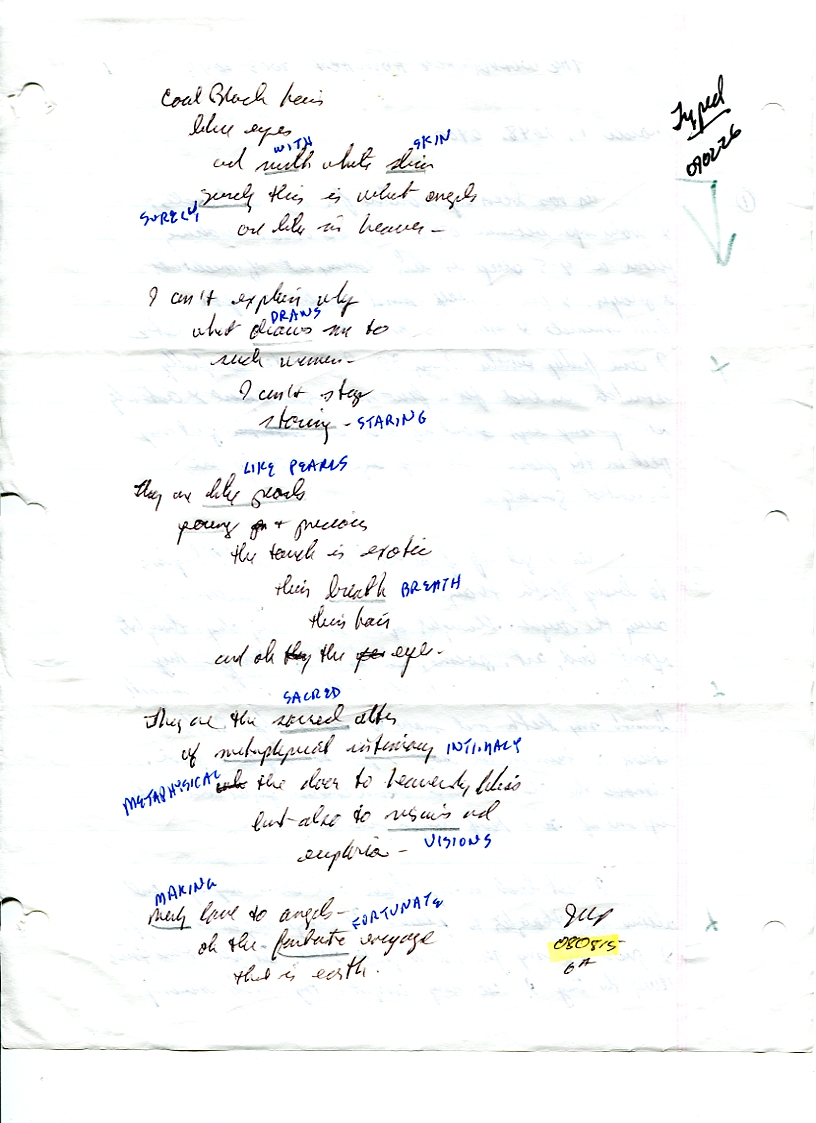 Typed
090226
Coal Black hair
blue eyes
WITH SKIN
and with white skin
surely this is what angels
SURELY
are like in heaven –
I can't explain why
DRAWS
what draws me to
such women –
I can't stop
staring – STARING
LIKE PEARLS
they are like pearls
young + precious
the touch is exotic
their breath BREATH
their hair
and oh they the eyes –
SACRED
They are the sacred alter
of metaphysical intimacy INTIMACY
METAPHYSICAL
the door to heavenly bliss
but also to visions and
euphoria – VISIONS
MAKING
making love to angels –
FORTUNATE
oh the fortunate voyage
that is earth.
080815